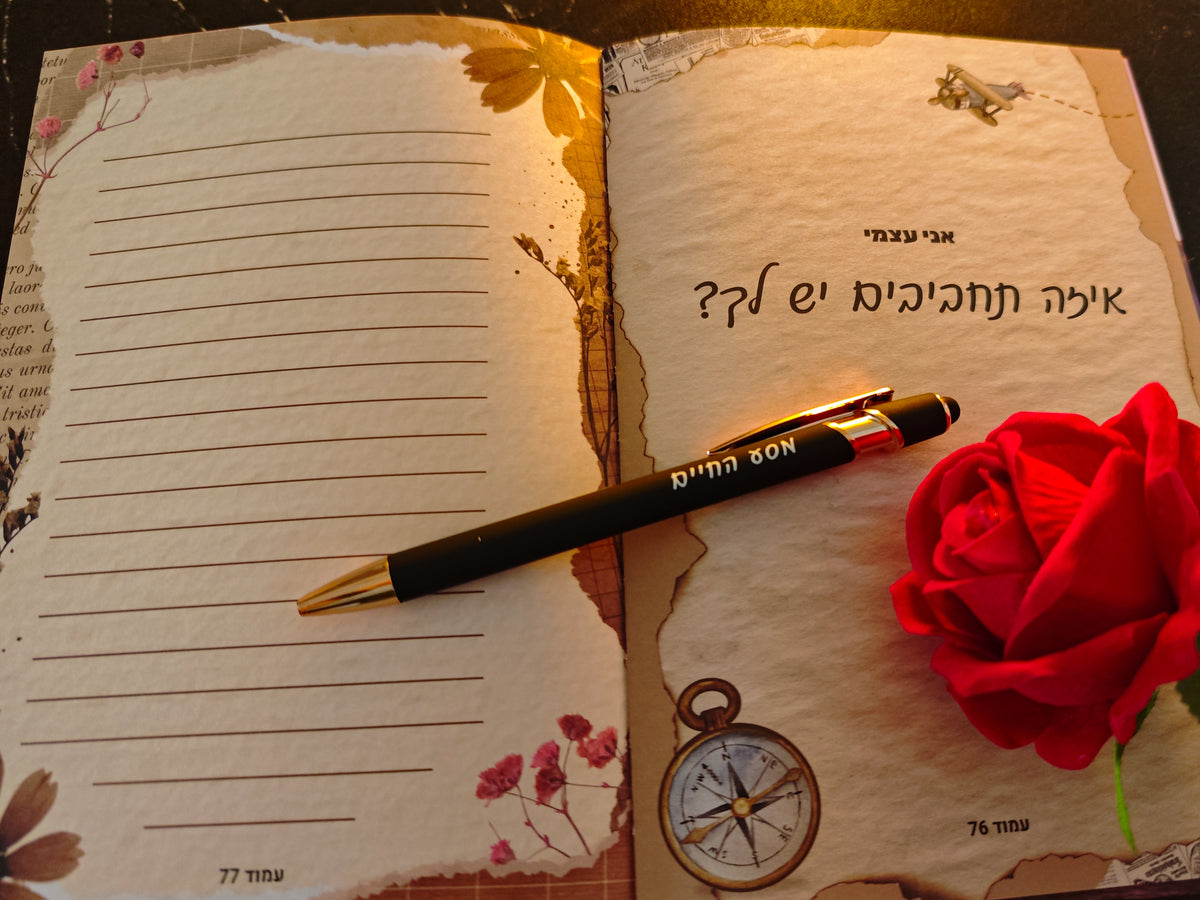 אני עצמי
איזה תחביבים יש לך?
מסע החיים
עמוד 76
עמוד 77